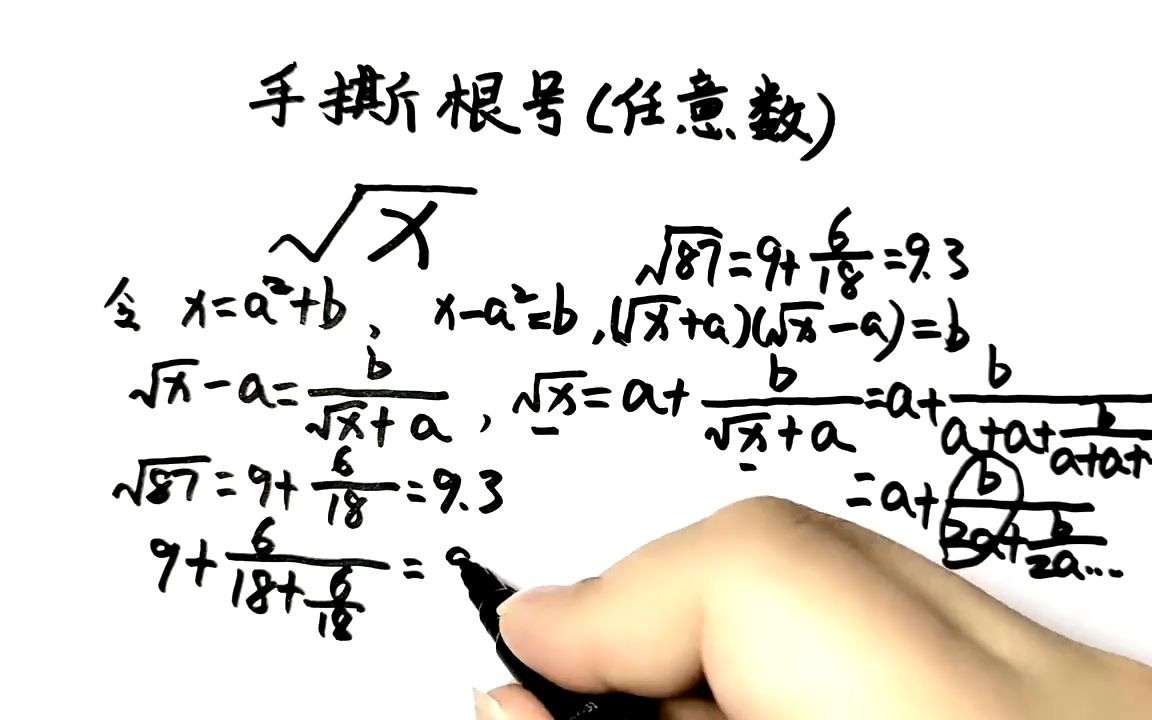 手撕根号(任意数)
√x
√87=9+6/18=9.3
令 x=a²+b, x-a²=b,(√x+a)(√x-a)=b
√x-a=b/(√x+a), √x=a+b/(√x+a)=a+b/(a+a+b/(a+a+
=a+b/(2a+b/(2a...
√87=9+6/18=9.3
9+6/(18+6/18)=